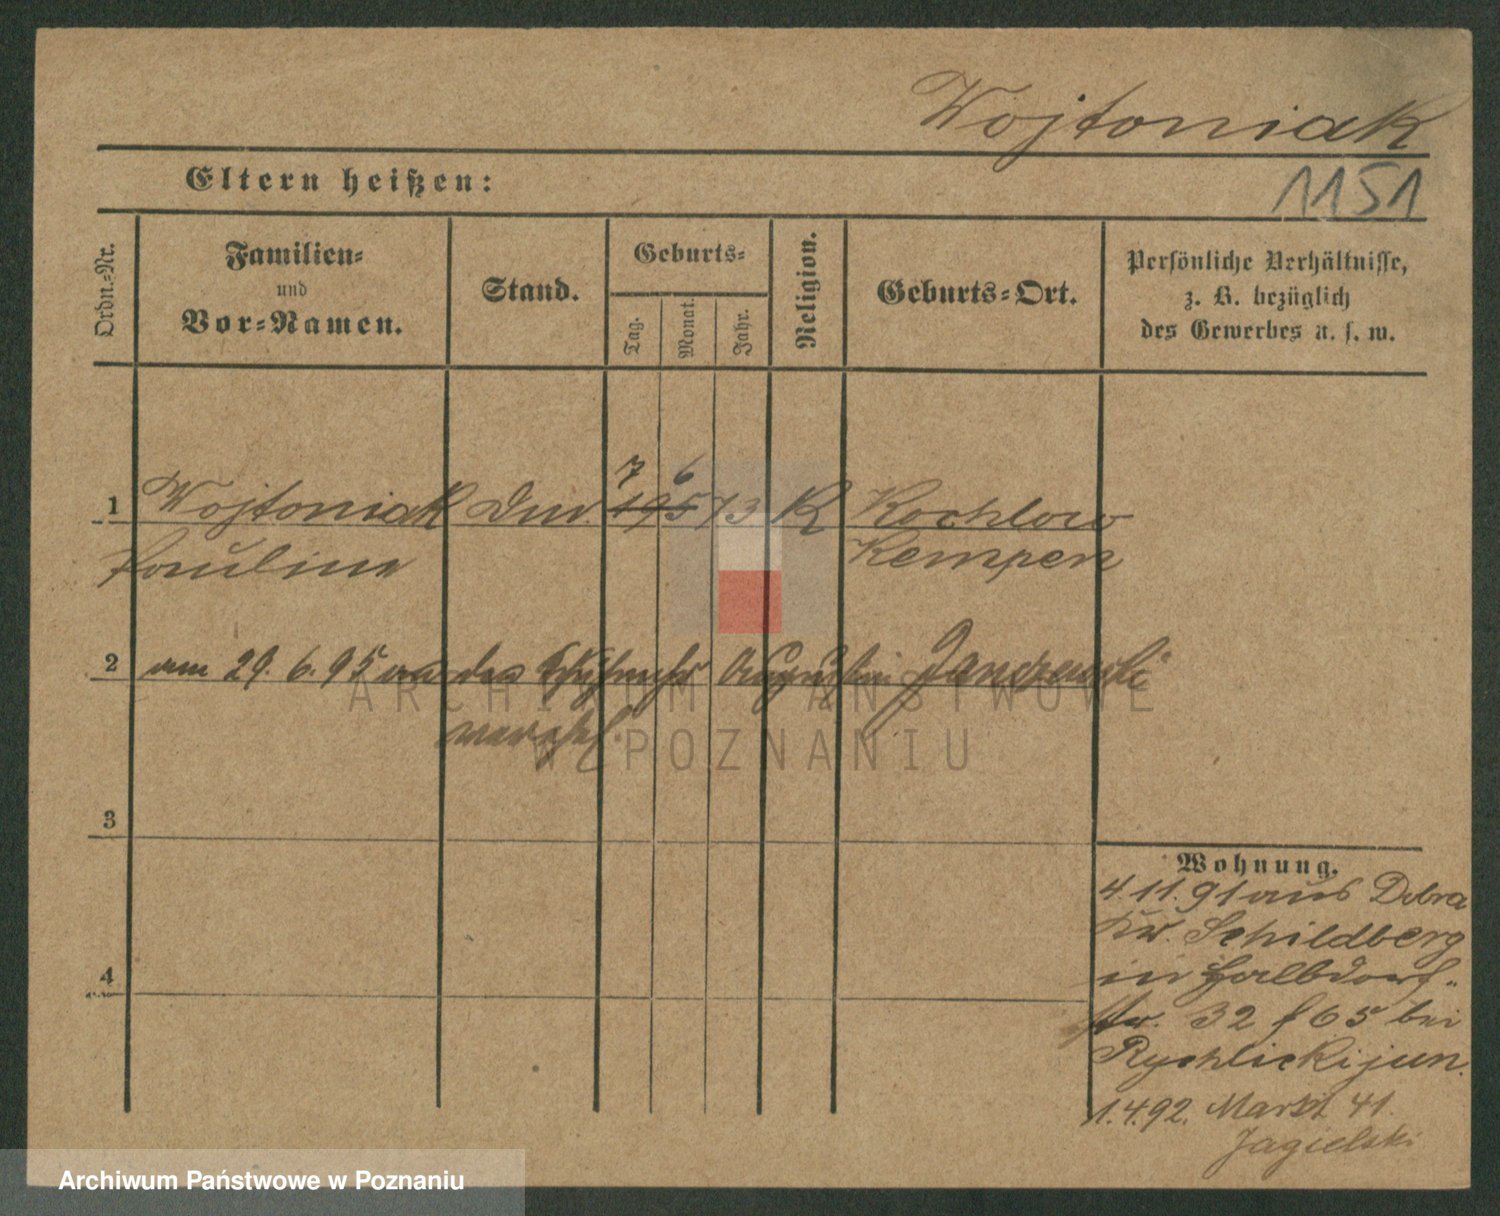 Wojtoniak
Eltern heißen:
1151
Ordn.-Nr.
Familien-
und
Vor-Namen.
Stand.
Geburts-
Tag.
Monat.
Jahr.
Religion.
Geburts-Ort.
Persönliche Verhältnisse,
z. B. bezüglich
des Gewerbes u. s. w.
7 6
1 Wojtoniak 19 5 73 K Kochlow
Pauline Kempen
2 am 29. 6. 95 Augustin
ARCHIWUM PAŃSTWOWE
W POZNANIU
3
4
Wohnung.
4 11. 91 aus Dobra
Kr. Schildberg
in Halbdorf-
str. 32 f 65 bei
Rychlicki jun.
1. 4. 92. Markt 41
Jagielski
Archiwum Państwowe w Poznaniu